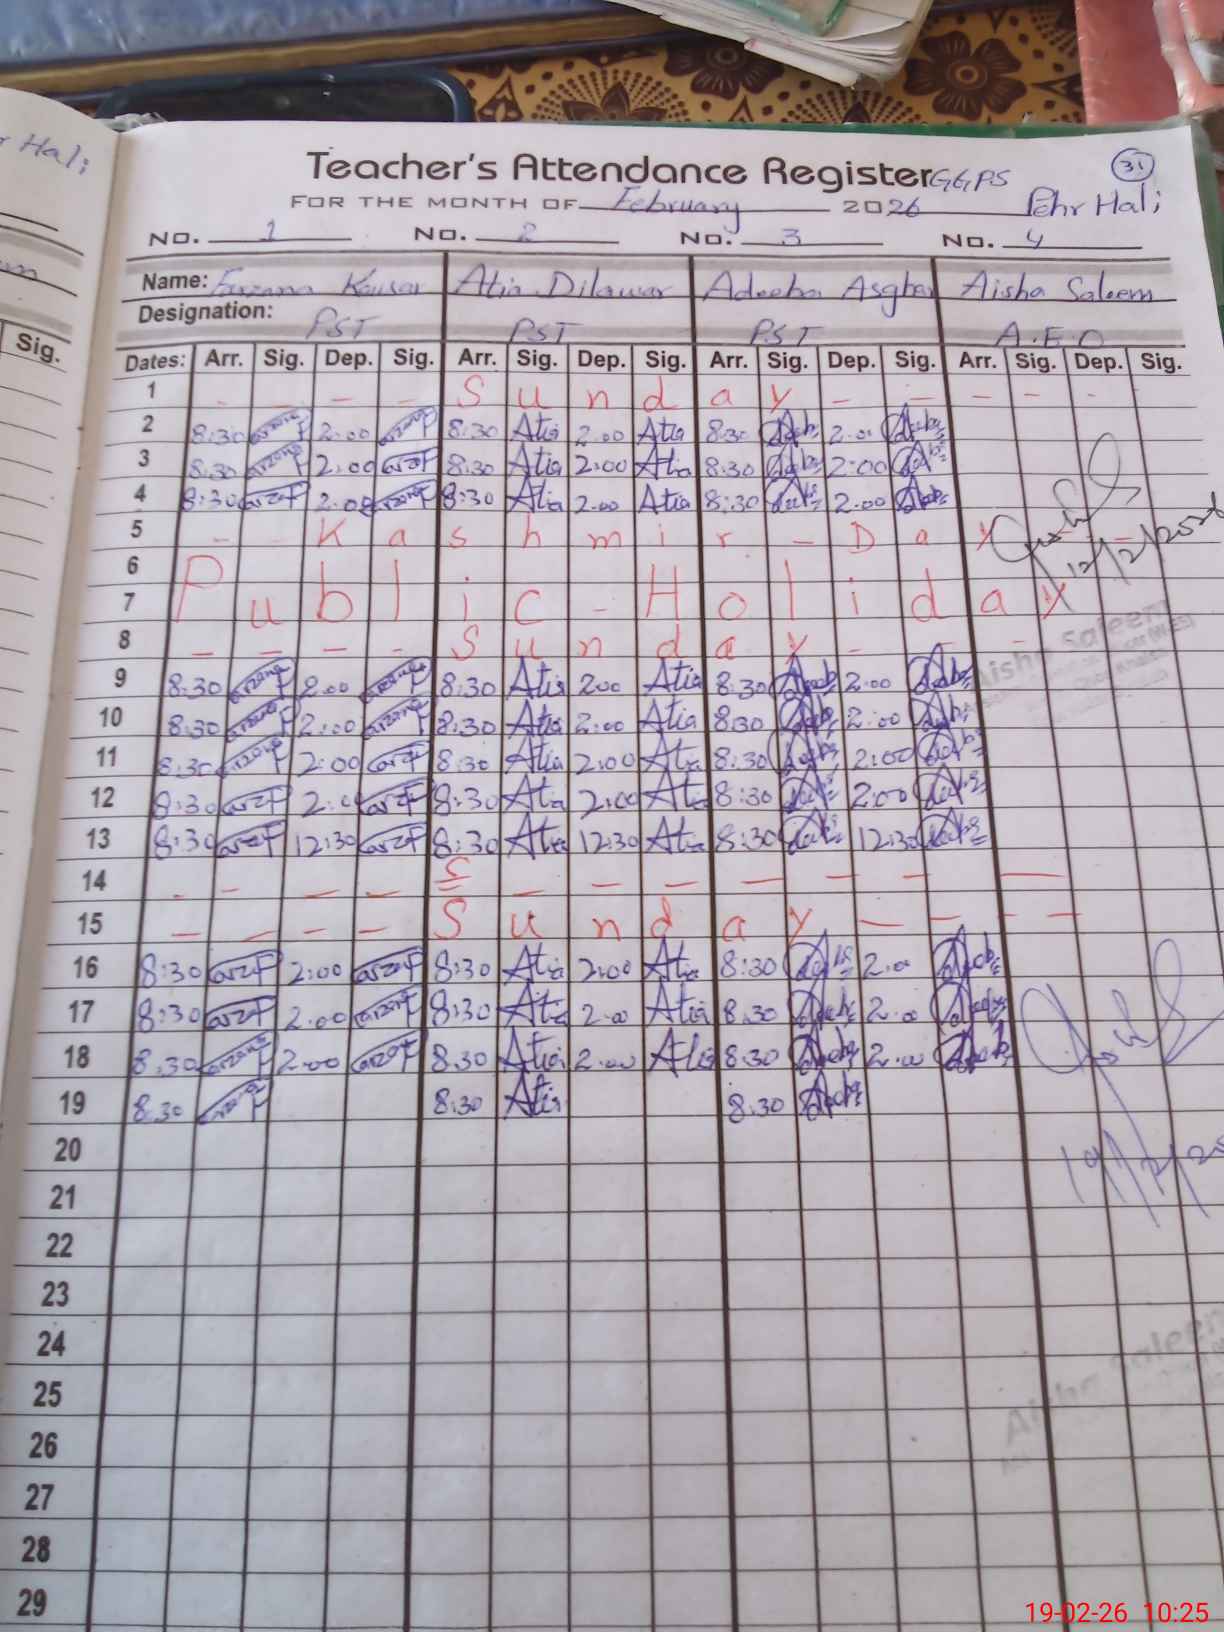 Hali
Sig.
Teacher's Attendance Register GGPS 31
FOR THE MONTH OF February 2026 Pehr Hali
NO. 1 NO. 2 NO. 3 NO. 4
Name: Farzana Kousar Atia Dilawar Adeeba Asghar Aisha Saleem
Designation: PST PST PST A.E.O
Dates: Arr. Sig. Dep. Sig. Arr. Sig. Dep. Sig. Arr. Sig. Dep. Sig. Arr. Sig. Dep. Sig.
1 - - - - Sunday - - - - - -
2 8:30 2:00 8:30 Atia 2:00 Atia 8:30 2:00
3 8:30 2:00 8:30 Atia 2:00 Atia 8:30 2:00
4 8:30 2:00 8:30 Atia 2:00 Atia 8:30 2:00
5 - - Kashmir - Day - -
12/2/2026
6
7 Public - Holiday
8 - - - - Sunday - - -
Aisha Saleem
9 8:30 2:00 8:30 Atia 2:00 Atia 8:30 2:00
10 8:30 2:00 8:30 Atia 2:00 Atia 8:30 2:00
11 8:30 2:00 8:30 Atia 2:00 Atia 8:30 2:00
12 8:30 2:00 8:30 Atia 2:00 Atia 8:30 2:00
13 8:30 12:30 8:30 Atia 12:30 Atia 8:30 12:30
14 - - - - S - - - - - - -
15 - - - - Sunday - - - -
16 8:30 2:00 8:30 Atia 2:00 Atia 8:30 2:00
17 8:30 2:00 8:30 Atia 2:00 Atia 8:30 2:00
18 8:30 2:00 8:30 Atia 2:00 Atia 8:30 2:00
19 8:30 8:30 Atia 8:30
20
21
22
23
24
25
Aisha Saleem
26
27
28
29
19-02-26 10:25